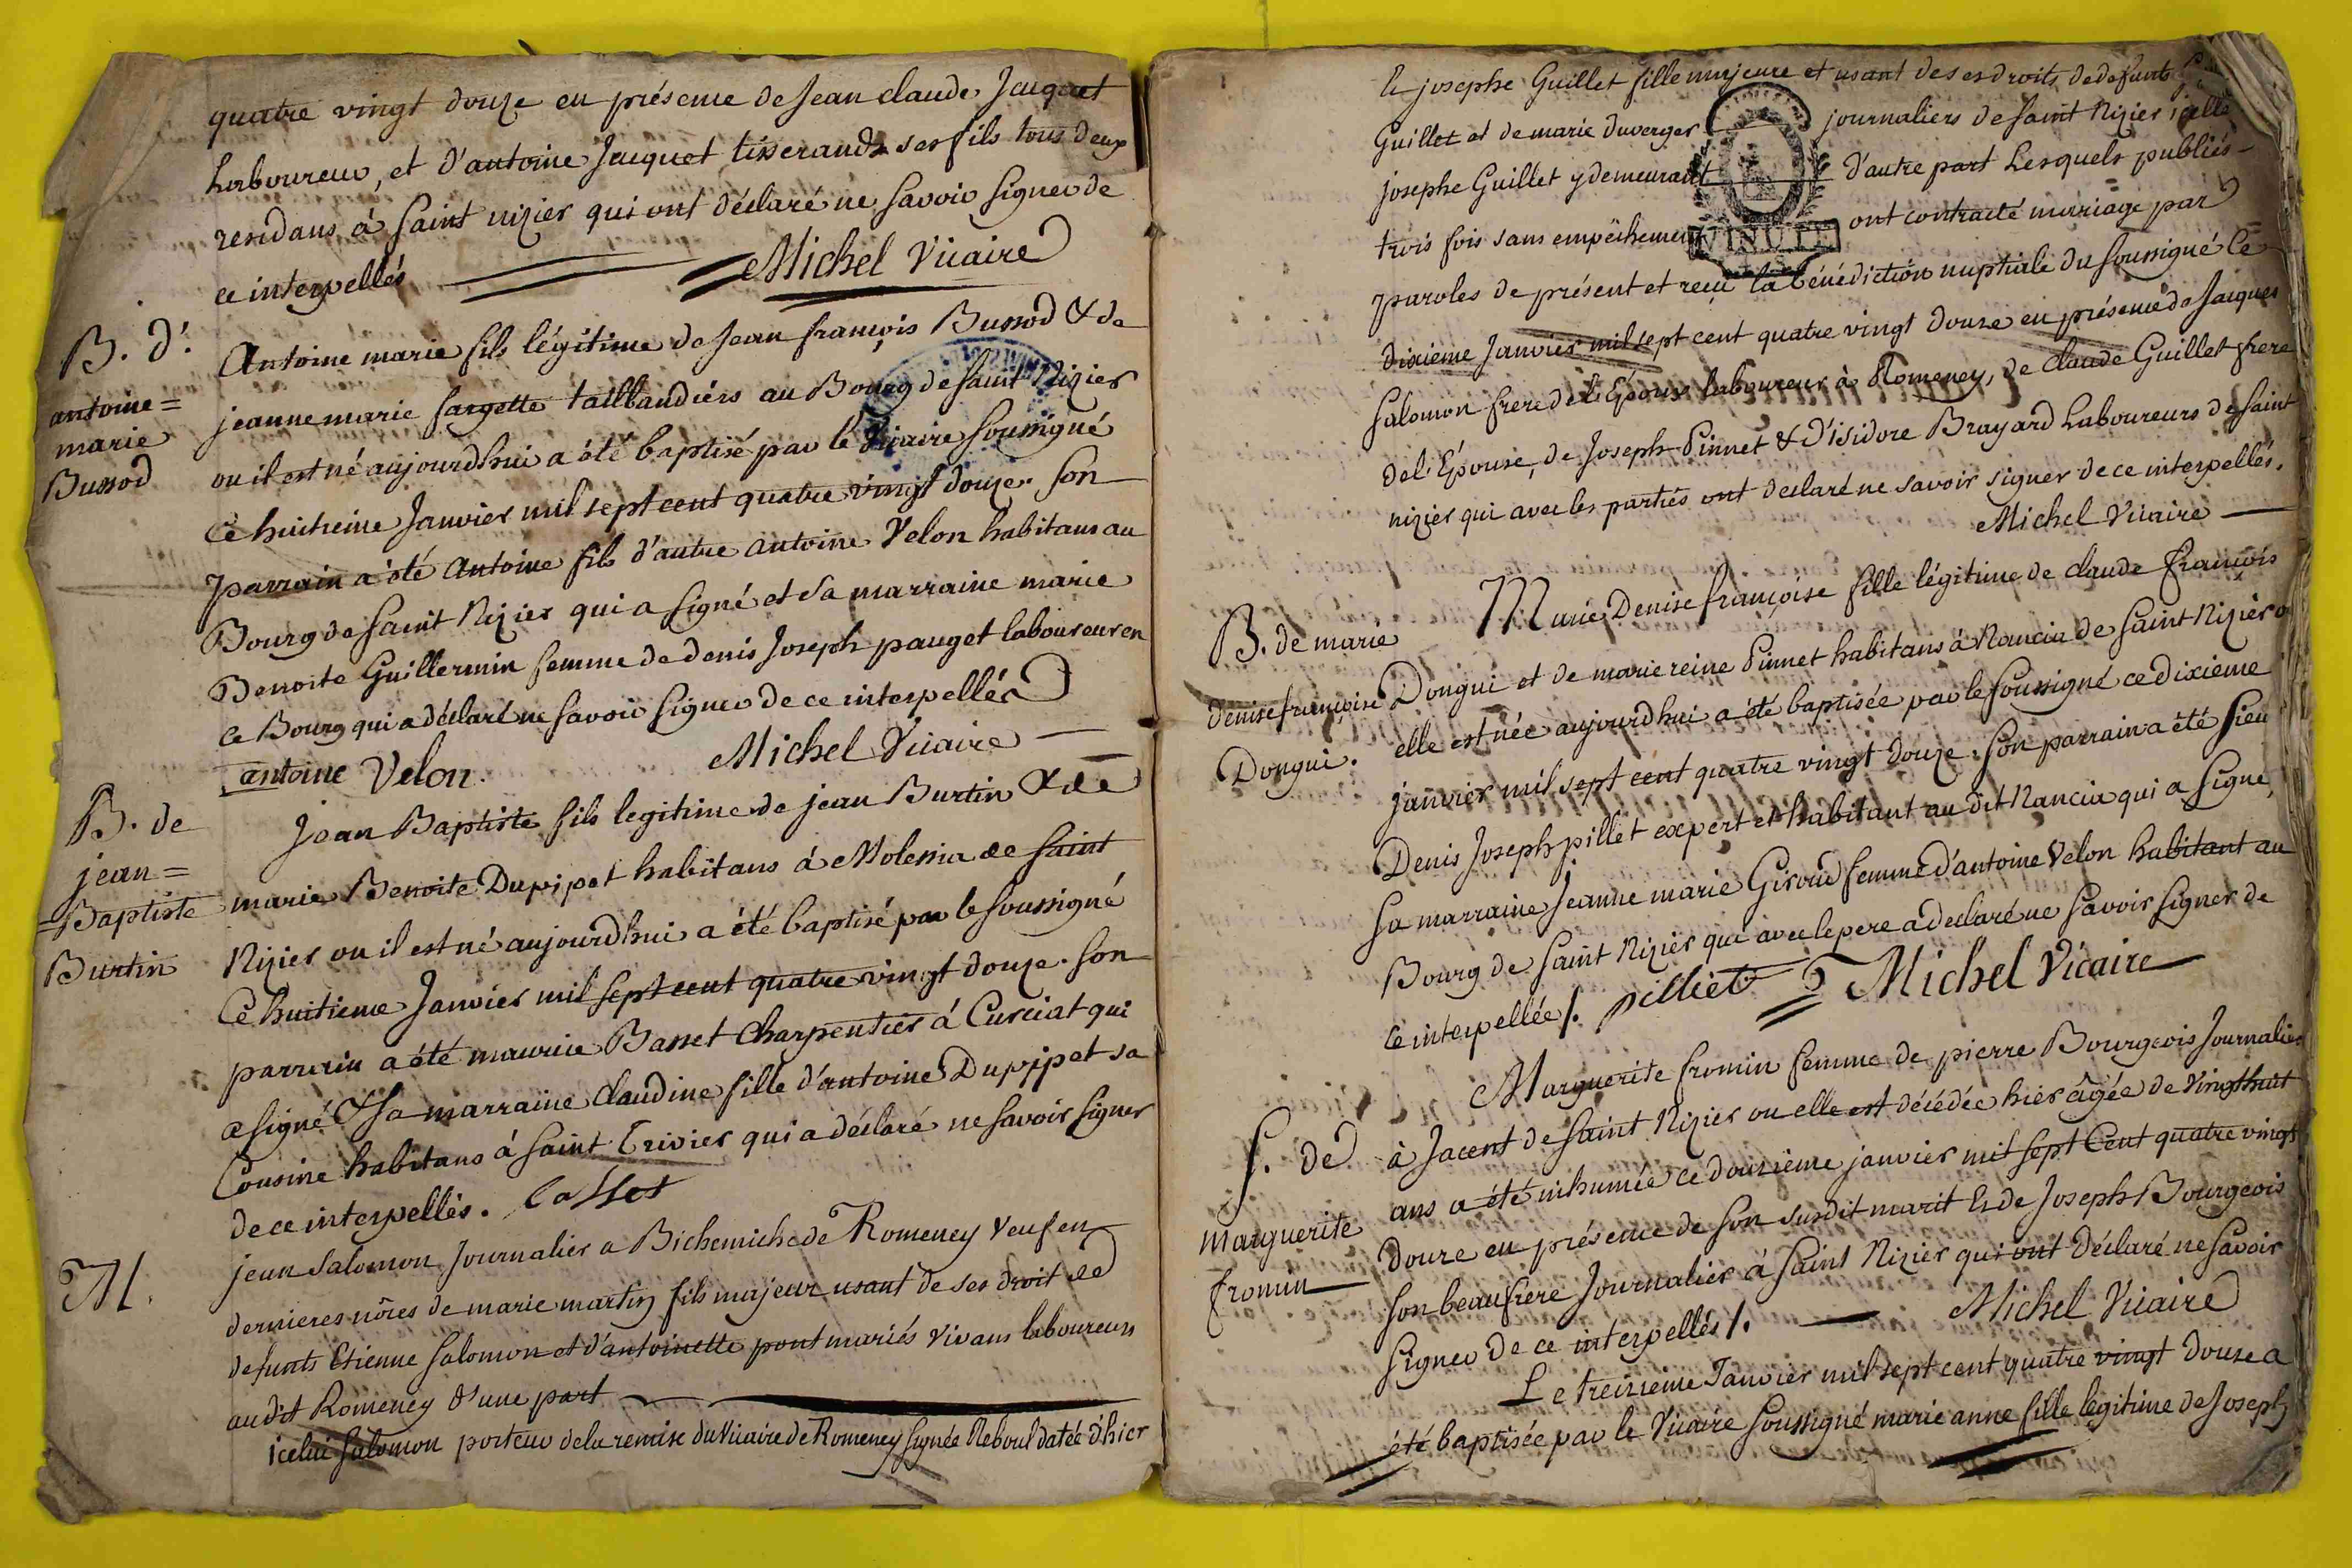 quatre vingt douze en présence de Jean claude Jacquet
Laboureur, et d'antoine Jacquet tisserands ses fils tous deux
residans à Saint nizier qui ont déclaré ne savoir signer de
ce interpellés Michel Vicaire
B. d'
antoine=
marie
Bussod
Antoine marie fils légitime de Jean françois Bussod & de
jeanne marie fargette taillandiers au Bourg de Saint Nizier
ou il est né aujourdhui a été baptisé par le Vicaire soussigné
ce huitieme Janvier mil sept cent quatre vingt douze. son
parrain a été Antoine fils d'autre antoine Velon habitans au
Bourg de Saint Nizier qui a signé et sa marraine marie
Benoite Guillermin femme de denis Joseph pauget laboureur en
ce Bourg qui a déclaré ne savoir signer de ce interpellés
antoine Velon. Michel Vicaire
B. de
jean=
=Baptiste
Burtin
Jean Baptiste fils legitime de jean Burtin & de
marie Benoite Dupipet habitans à Molessia de saint
Nizier ou il est né aujourdhui a été baptisé par le soussigné
Ce huitieme Janvier mil sept cent quatre vingt douze. son
parrain a été maurice Basset Charpentier à Curciat qui
a signé & sa marraine claudine fille d'antoine Dupipet sa
Cousine habitans à Saint Trivier qui a déclaré ne savoir signer
de ce interpellés.
M.
jean Salomon Journalier a Bichemiche de Romeney Veuf en
dernieres nôces de marie martin fils majeur usant de ses droit de
defunts Etienne Salomon et d'antoinette pont mariés vivans laboureurs
au dit Romeney d'une part
icelui Salomon porteur de la remise du Vicaire de Romeney signée Reboul datée d'hier
& josephe Guillet fille majeure et usant de ses droits de defunts
Guillet et de marie duverger journaliers de saint Nizier icelle
josephe Guillet y demeurant d'autre part Lesquels publiés
trois fois sans empêchement ont contracté mariage par
paroles de présent et reçu la bénédiction nuptiale du soussigné ce
dixieme Janvier mil sept cent quatre vingt douze en présence de Jacques
Salomon frere de l'Epoux laboureur à Romeney, de claude Guillet frere
de l'Epouse, de Joseph Pinnet & d'isidore Brayard Laboureurs de saint
nizier qui avec les parties ont declaré ne savoir signer de ce interpellés.
Michel Vicaire
B. de marie
denise françoise
Dongui.
Marie Denise françoise fille légitime de claude françois
Dongui et de marie reine Pinnet habitans à Nancia de saint Nizier ou
elle est née aujourdhui a été baptisée par le soussigné ce dixieme
janvier mil sept cent quatre vingt douze. son parrain a été sieu
Denis Joseph pillet expert et habitant au dit Nancia qui a signé,
sa marraine Jeanne marie Giroud femme d'antoine Velon habitant au
Bourg de saint Nizier qui avec le pere a declaré ne savoir signer de
ce interpellée/. pilliet Michel Vicaire
S. de
marguerite
fromin
Marguerite fromin femme de pierre Bourgeois Journalier
à Jacent de saint Nizier ou elle est décédée hier âgée de vingthuit
ans a été inhumée ce douzieme janvier mil sept Cent quatre vingt
douze en présence de son susdit marit & de Joseph Bourgeois
son beaufrere Journalier à saint Nizier qui ont déclaré ne savoir
signer de ce interpellés/. Michel Vicaire
Le treizieme Janvier mil sept cent quatre vingt douze a
été baptisée par le Vicaire soussigné marie anne fille legitime de Joseph